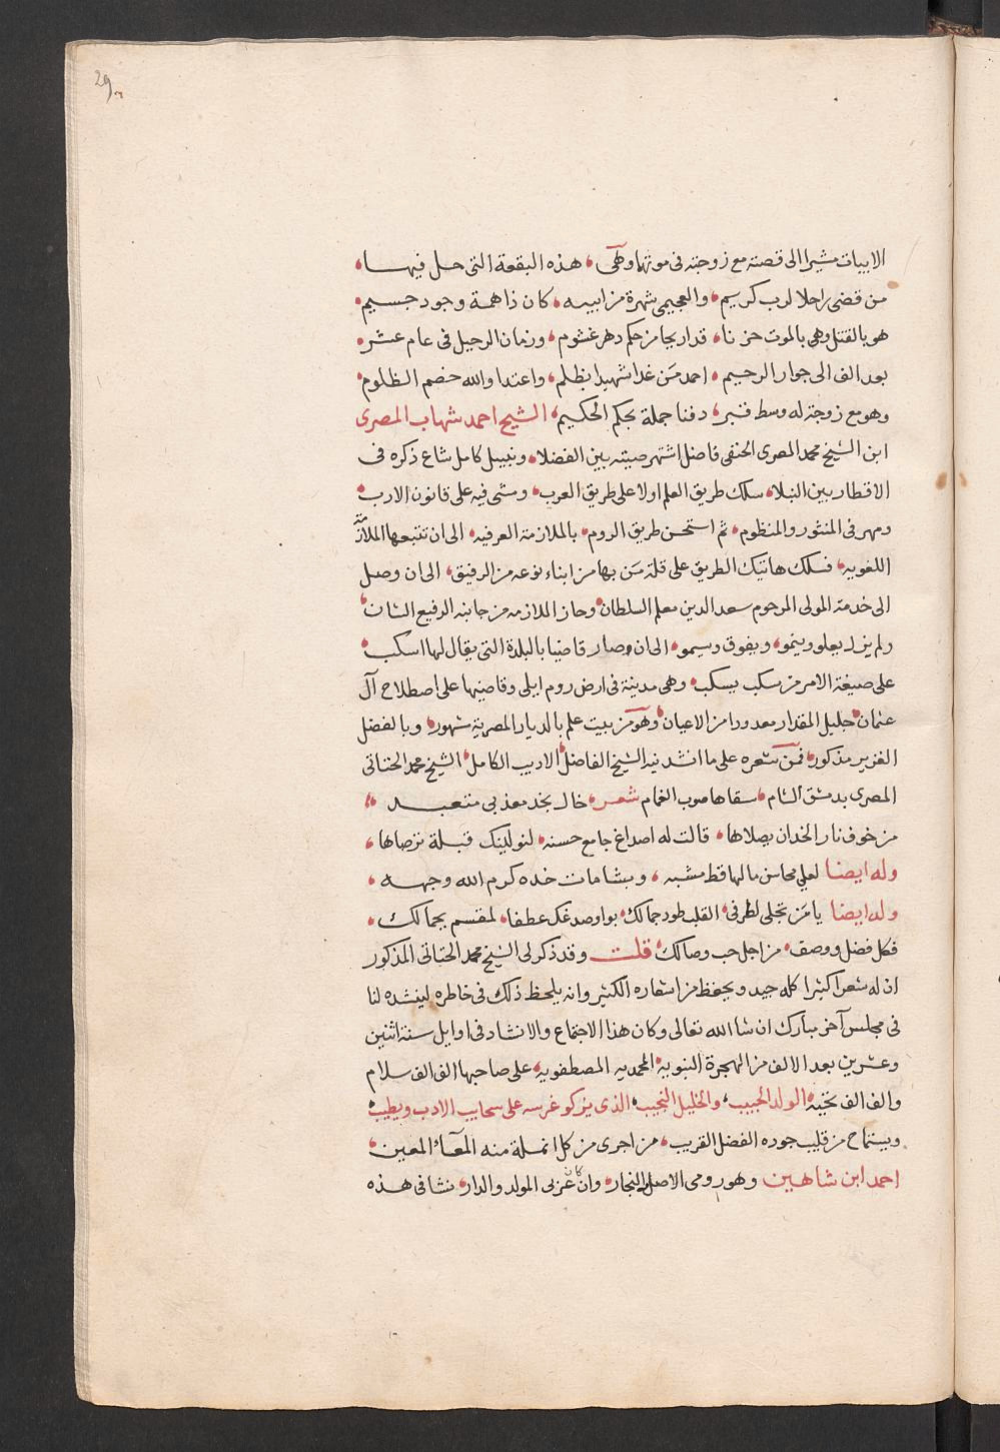 29
الابيات مشيرا الى قصته مع زوجته فى موتها وهى ، هذه البقعة التى حل فيها ،
من قضى راحلا لرب كريم ، والعجيمى شهرة من ابيه ، كان ذا همة وجود جسيم ،
هو بالقتل وهى بالموت حزنا ، قد اريجا من حكم دهر غشوم ، وزمان الرحيل فى عام عشر ،
بعد الف الى جوار الرحيم ، احمد من غدا شهيدا بظلم ، واعتدا والله خصم الظلوم ،
وهو مع زوجة له وسط قبر ، دفنا جملة بحكم الحكيم ، الشيخ احمد شهاب المصرى
ابن الشيخ محمد المصرى الحنفى فاضل اشتهر صيته بين الفضلا ، ونبيل كامل شاع ذكره فى
الاقطار بين النبلا ، سلك طريق العلم اولا على طريق العرب ، ومشى فيه على قانون الادب ،
ومهر فى المنثور والمنظوم ، ثم استحسن طريق الروم ، بالملازمة العرفيه ، الى ان تتبعها الملازمة
اللغويه ، فسلك هاتيك الطريق على قلة من بها من ابناء نوعه من الرفيق ، الى ان وصل
الى خدمة المولى المرحوم سعد الدين معلم السلطان ، وحاز الملازمه من جانبه الرفيع الشان ،
ولم يزل يعلو وينمو ، ويفوق ويسمو ، الى ان وصار قاضيا بالبلدة التى يقال لها اسكب ،
على صيغة الامر من سكب يسكب ، وهى مدينة فى ارض روم ايلى وقاضيها على اصطلاح آل
عثمان جليل المقدار معدودا من الاعيان ، وهو من بيت علم بالديار المصرية شهور ، وبالفضل
الغزير مذكور ، فمن شعره على ما انشدنيه الشيخ الفاضل الاديب الكامل ، الشيخ محمد الحتاتى
المصرى بدمشق الشام ، سقاها صوب الغمام شعر ، خال بخد معذبى متعبد ،
من خوف نار الخد ان يصلاها ، قالت له اصداغ جامع حسنه ، لنولينك قبلة ترضاها ،
وله ايضا لعلي محاسن ما لها قط مشبه ، وبشامات خده كرم الله وجهه ،
وله ايضا يا من تجلى لطرفى ، القلب طود جمالك ، بواو صدغك عطفا ، لمقسم بجمالك ،
فكل فضل ووصف ، من اجل حب وصالك ، قلت وقد ذكر لى الشيخ محمد الحتاتى المذكور
ان له شعرا كثيرا كله جيد ويحفظ من اشعاره الكثير وانه يلحظ ذلك فى خاطره لينشده لنا
فى مجلس آخر مبارك ان شا الله تعالى وكان هذا الاجتماع والانشاد فى اوايل سنة اثنين
وعشرين بعد الالف من الهجرة النبويه المحمديه المصطفويه ، على صاحبها الف الف سلام
والف الف تحيه ، الولد الحبيب ، والخليل النجيب ، الذى يزكو غرسه على سحايب الادب ويطيب ،
ويستماح من قليب جوده الفضل القريب ، من اجرى من كل انملة منه المآء المعين ،
احمد ابن شاهين وهو رومى الاصل والنجار ، وان كان عربى المولد والدار ، نشا فى هذه